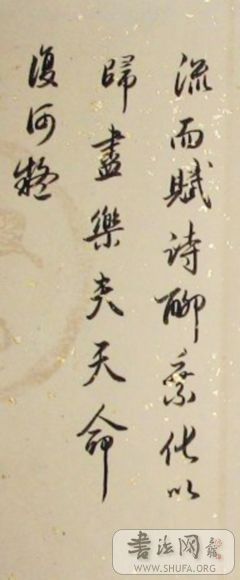 流而賦詩聊乘化以
歸盡樂夫天命
復何疑
書法网
WWW.SHUFA.ORG